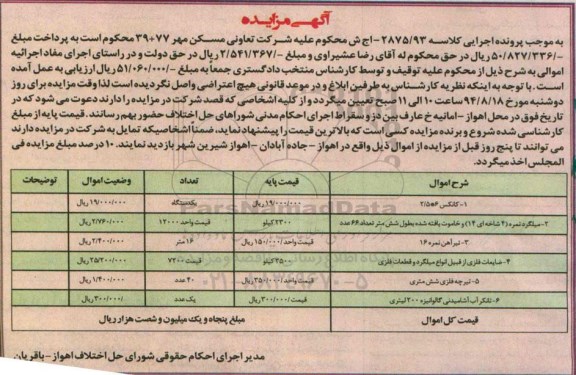 آگهی مزایده
به موجب پرونده اجرایی کلاسه ۲۸۷۵/۹۳-اج ش محکوم علیه شرکت تعاونی مسکن مهر ۷۷+۳۹ محکوم است به پرداخت مبلغ
۵۰/۸۲۷/۳۳۶/- ریال در حق محکوم له آقای رضا عشیراوی و مبلغ -/۲/۵۴۱/۳۶۷ ریال در حق دولت و در راستای اجرای مفاد اجرائیه
اموالی به شرح ذیل از محکوم علیه توقیف و توسط کارشناس منتخب دادگستری جمعاً به مبلغ -/۵۱/۰۶۰/۰۰۰ ریال ارزیابی به عمل آمده
است. با توجه به اینکه نظریه کارشناس به طرفین ابلاغ و در موعد قانونی هیچ اعتراضی واصل نگردیده است لذا وقت مزایده برای روز
دوشنبه مورخ ۹۴/۸/۱۸ ساعت ۱۰ الی ۱۱ صبح تعیین میگردد و از کلیه اشخاصی که قصد شرکت در مزایده را دارند دعوت می شود که در
تاریخ فوق در محل اهواز-امانیه خ عارف بین دز و سقراط اجرای احکام مدنی شوراهای حل اختلاف حضور بهم رسانند. قیمت پایه از مبلغ
کارشناسی شده شروع و برنده مزایده کسی است که بالاترین قیمت را پیشنهاد نماید، ضمناً اشخاصیکه تمایل به شرکت در مزایده دارند
می توانند تا پنج روز قبل از مزایده از اموال ذیل واقع در اهواز - جاده آبادان - اهواز شیرین شهر بازدید نمایند. ۱۰ درصد مبلغ مزایده فی
المجلس اخذ میگردد.
شرح اموال قیمت پایه تعداد وضعیت اموال توضیحات
۱- کانکس ۶*۲/۵ ۱۹/۰۰۰/۰۰۰ ریال یکدستگاه ۱۹/۰۰۰/۰۰۰ ریال
۲-میلگرد نمره (۴ شاخه ای ۱۴) و خاموت بافته شده بطول شش متر تعداد ۶۶ عدد ۲۳۰۰ کیلو قیمت واحد ۱۲۰۰۰ ۲/۷۶۰/۰۰۰ ریال
۳- تیرآهن نمره ۱۶ قیمت واحد ۱۵۰/۰۰۰ ریال ۱۶ متر ۲/۴۰۰/۰۰۰ ریال
۴- ضایعات فلزی از قبیل انواع میلگرد و قطعات فلزی ۳۵۰۰ کیلو قیمت ۷۲۰۰ ۲۵/۲۰۰/۰۰۰ ریال
۵- تیرچه فلزی شش متری قیمت واحد ۳۵۰/۰۰۰ ریال ۴۰ عدد ۱/۴۰۰/۰۰۰ ریال
۶- تانکر آب آشامیدنی گالوانیزه ۲۰۰۰ لیتری قیمت ۳۰۰/۰۰۰ ریال یک عدد ۳۰۰/۰۰۰ ریال
قیمت کل اموال مبلغ پنجاه و یک میلیون و شصت هزار ریال
مدیر اجرای احکام حقوقی شورای حل اختلاف اهواز - باقریان
ParsNamadData
۰۲۱-۸۸۳۴۹۶۷۰-۵